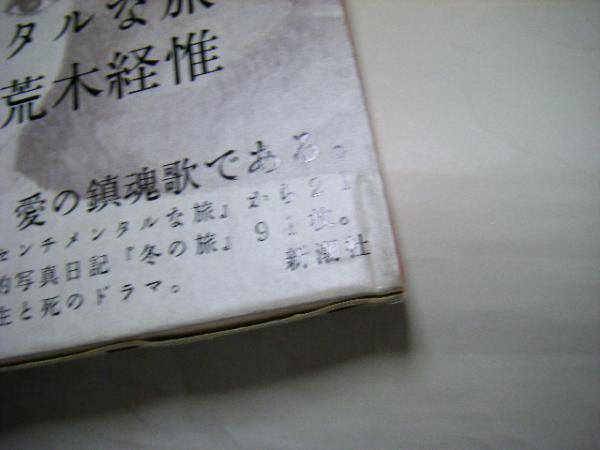 タルな旅
荒木経惟
愛の鎮魂歌である。
センチメンタルな旅』から21
的写真日記『冬の旅』91枚。
生と死のドラマ。
新潮社